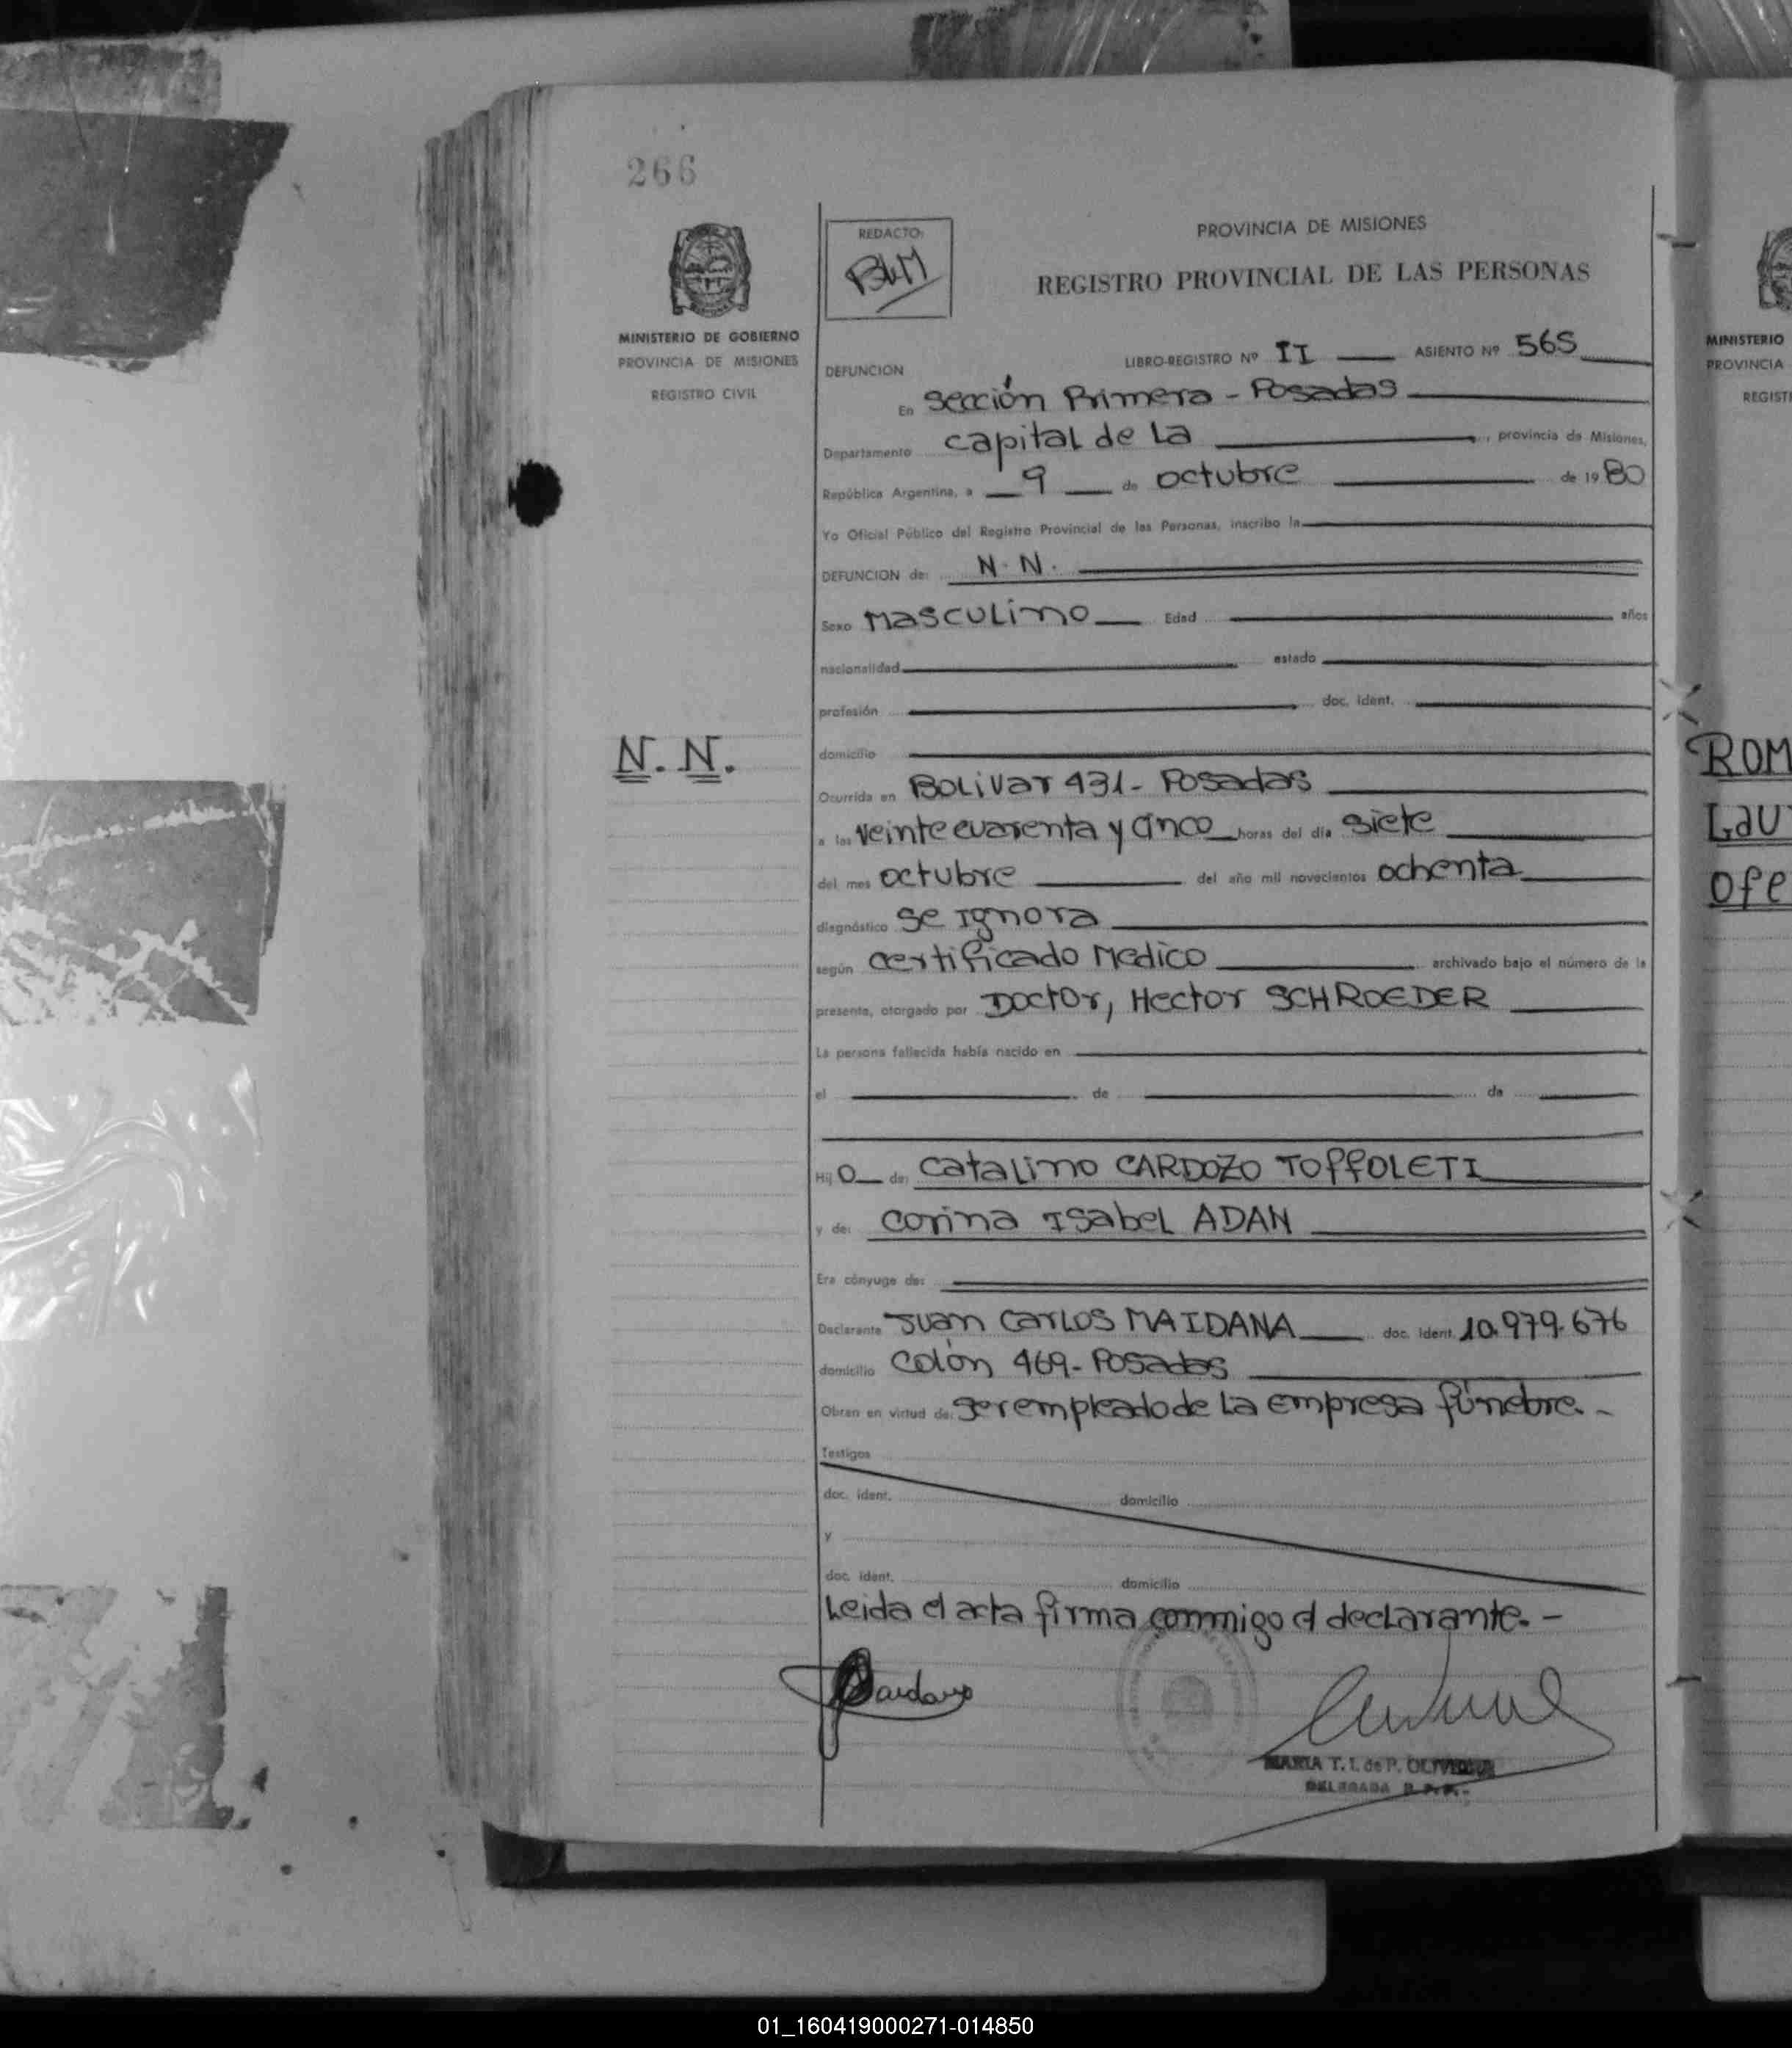 266
REDACTO:
BLM
PROVINCIA DE MISIONES
REGISTRO PROVINCIAL DE LAS PERSONAS
MINISTERIO DE GOBIERNO
PROVINCIA DE MISIONES
REGISTRO CIVIL
DEFUNCION
LIBRO-REGISTRO Nº II ASIENTO Nº 565
En Sección Primera - Posadas
Departamento capital de La , provincia de Misiones,
República Argentina, a 9 de octubre de 1980
Yo Oficial Público del Registro Provincial de las Personas, inscribo la
DEFUNCION de: N. N.
Sexo Masculino Edad años
nacionalidad estado
profesión doc. ident.
N. N.
domicilio
Ocurrida en Bolivar 431 - Posadas
a las veinte cuarenta y cinco horas del día siete
del mes octubre del año mil novecientos ochenta
diagnóstico se ignora
según certificado Medico archivado bajo el número de la
presente, otorgado por Doctor, Hector SCHROEDER
La persona fallecida había nacido en
el de de
Hij o de: Catalino CARDOZO TOFFOLETI
y de: Corina Isabel ADAN
Era cónyuge de:
Declarante Juan Carlos MAIDANA doc. ident. 10.979.676
domicilio Colón 469 - Posadas
Obran en virtud de: ser empleado de la empresa fúnebre. -
Testigos
doc. ident. domicilio
y
doc. ident. domicilio
Leida el acta firma conmigo el declarante. -
MARIA T. I. de P. OLIVEIRA
DELEGADA R. P. P.
MINISTERIO
PROVINCIA
REGIST
ROM
Lau
Ofe
01_160419000271-014850